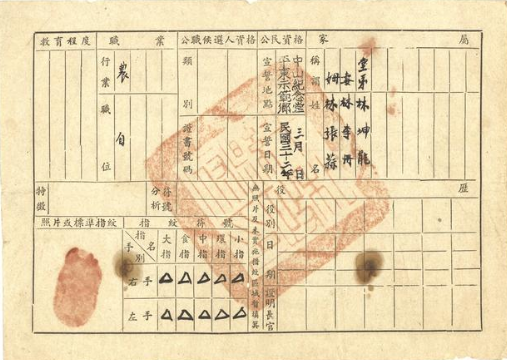 教育程度
職業
公職候選人資格
公民資格
家屬
行業
農
職位
自
類別
證書號碼
宣誓地點
中山紀念堂
宣誓日期
民國三十二年
三月 日
稱謂
姓名
堂弟 林坤龍
林李
林張
特徵
分析
符號
役歷
役別
日期
證明長官
照片或標準指紋
指紋符號
指名
手別
大指
食指
中指
環指
小指
右手 △ △ △ △ △
左手 △ △ △ △ △